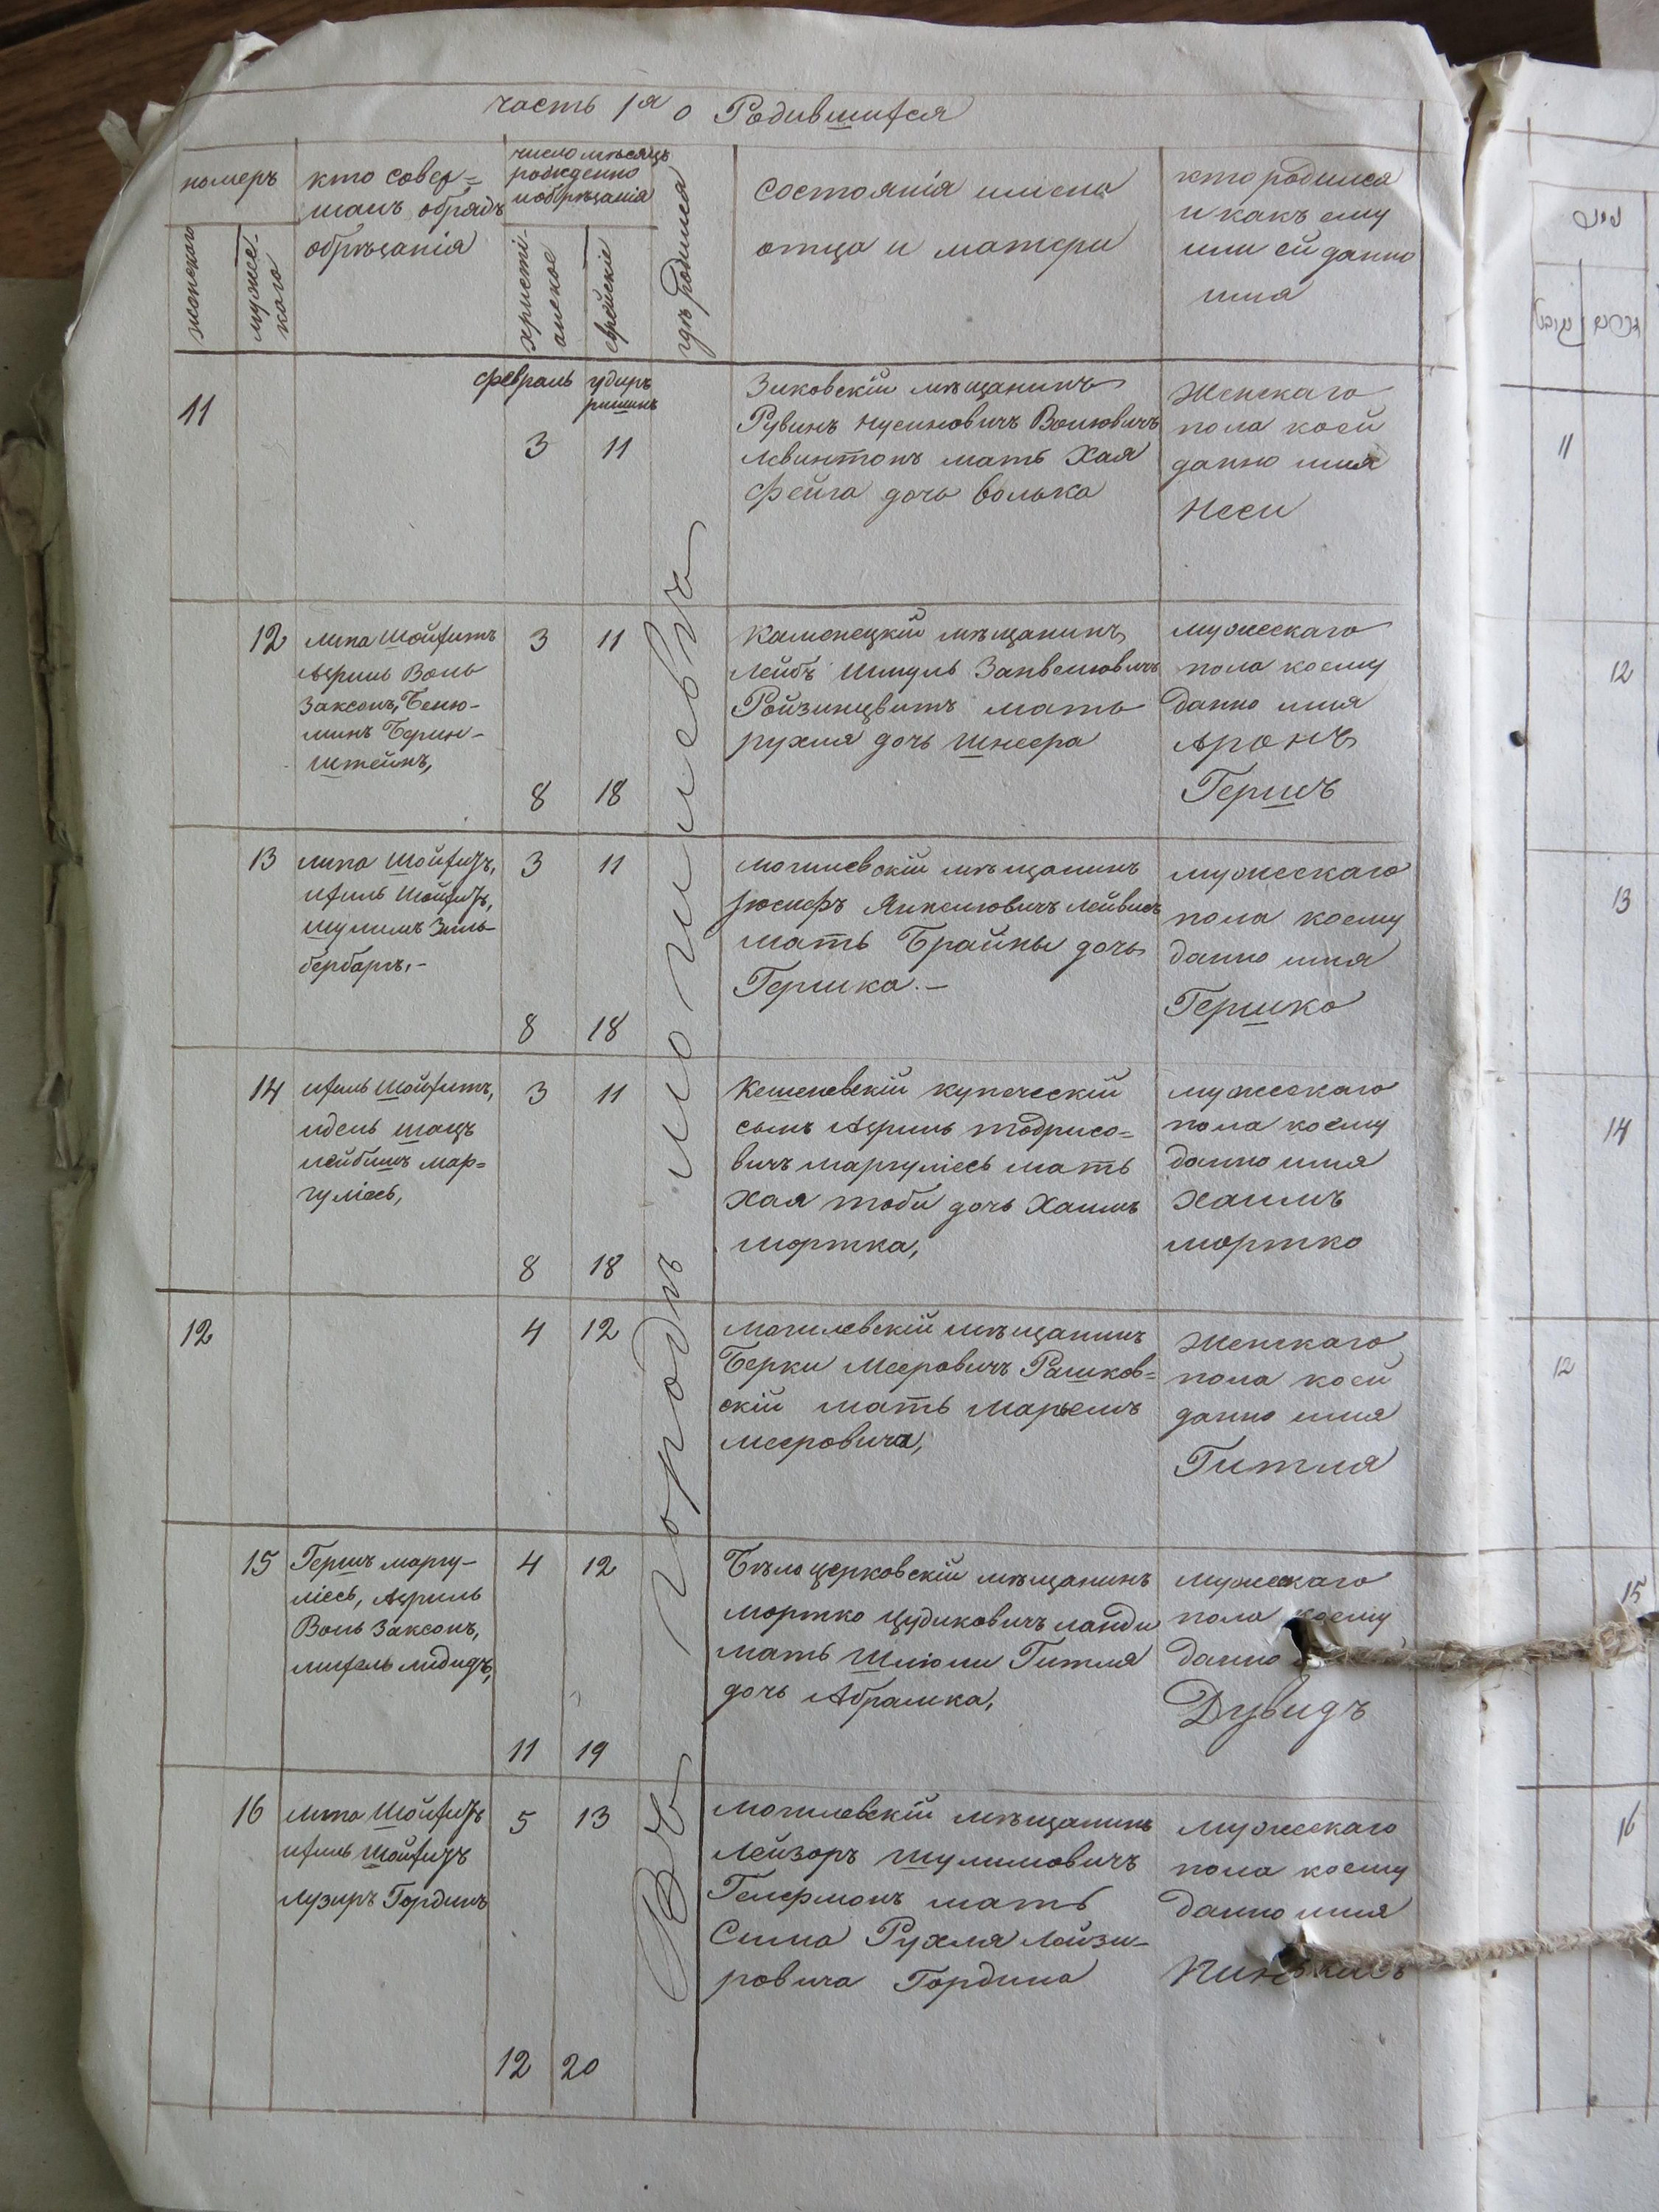 часть 1я о Родившихся
номеръ
женскаго
мужес-
каго
кто совер=
шалъ обрядъ
обрѣзанія
число мѣсяцъ
рожденно
и обрѣзанія
христі-
анское
еврейскіе
гдѣ родился
состоянія имена
отца и матери
кто родился
и какъ ему
или ей данно
имя
въ городѣ могилевѣ
11
февраль
3
11
Рувинъ Нусиновичъ Волковичъ
Левинтонъ мать Хая
Фейга дочь Волька
Женскаго
пола коей
данно имя
Неси
12
липа Шойхитъ
Авриль Воль
Заксонъ, Беню-
минъ Берин-
штейнъ,
3
11
8
18
Каменецкій мѣщанинъ
Лейбъ Шмуль Занвелювичъ
Ройзинцвитъ мать
рухля дочь Шнеера
мужескаго
пола коему
данно имя
Аронъ
Гершъ
13
липа Шойхитъ,
ихиль Шойхитъ,
шулимъ Зиль-
бербаргъ,-
3
11
8
18
могилевскій мѣщанинъ
Іюсифъ Янкелювичъ
мать Брайны дочь
Гершка.-
мужескаго
пола коему
данно имя
Гершко
14
ихиль Шойхитъ,
идель шацъ
лейбишъ мар=
гуліесъ,
3
11
8
18
Кешеневскій купеческій
сынъ Авриль тодрисо=
вичъ маргуліесъ мать
Хая тоби дочь Хаимъ
мортка,
мужескаго
пола коему
данно имя
Хаимъ
мортко
12
4
12
могилевскій мѣщанинъ
Берки Мееровичъ Рашков=
скій мать Марьемъ
мееровича,
Женскаго
пола коей
данно имя
Гитля
15
Гершъ маргу-
ліесъ, Авриль
Воль Заксонъ,
4
12
11
19
Бѣлоцерковскій мѣщанинъ
мортко Цудиковичъ ланди
мать Шлюми Гитля
дочь Абрамка,
мужескаго
пола коему
данно
Дувидъ
16
липа Шойхитъ
ихиль Шойхитъ
лузиръ Гординъ
5
13
12
20
могилевскій мѣщанинъ
Лейзоръ шулимовичъ
Гелфмонъ мать
Сима Рухля Лейзи-
ровича Гордина
мужескаго
пола коему
данно имя
Пинькасъ
11
12
13
14
12
15
16